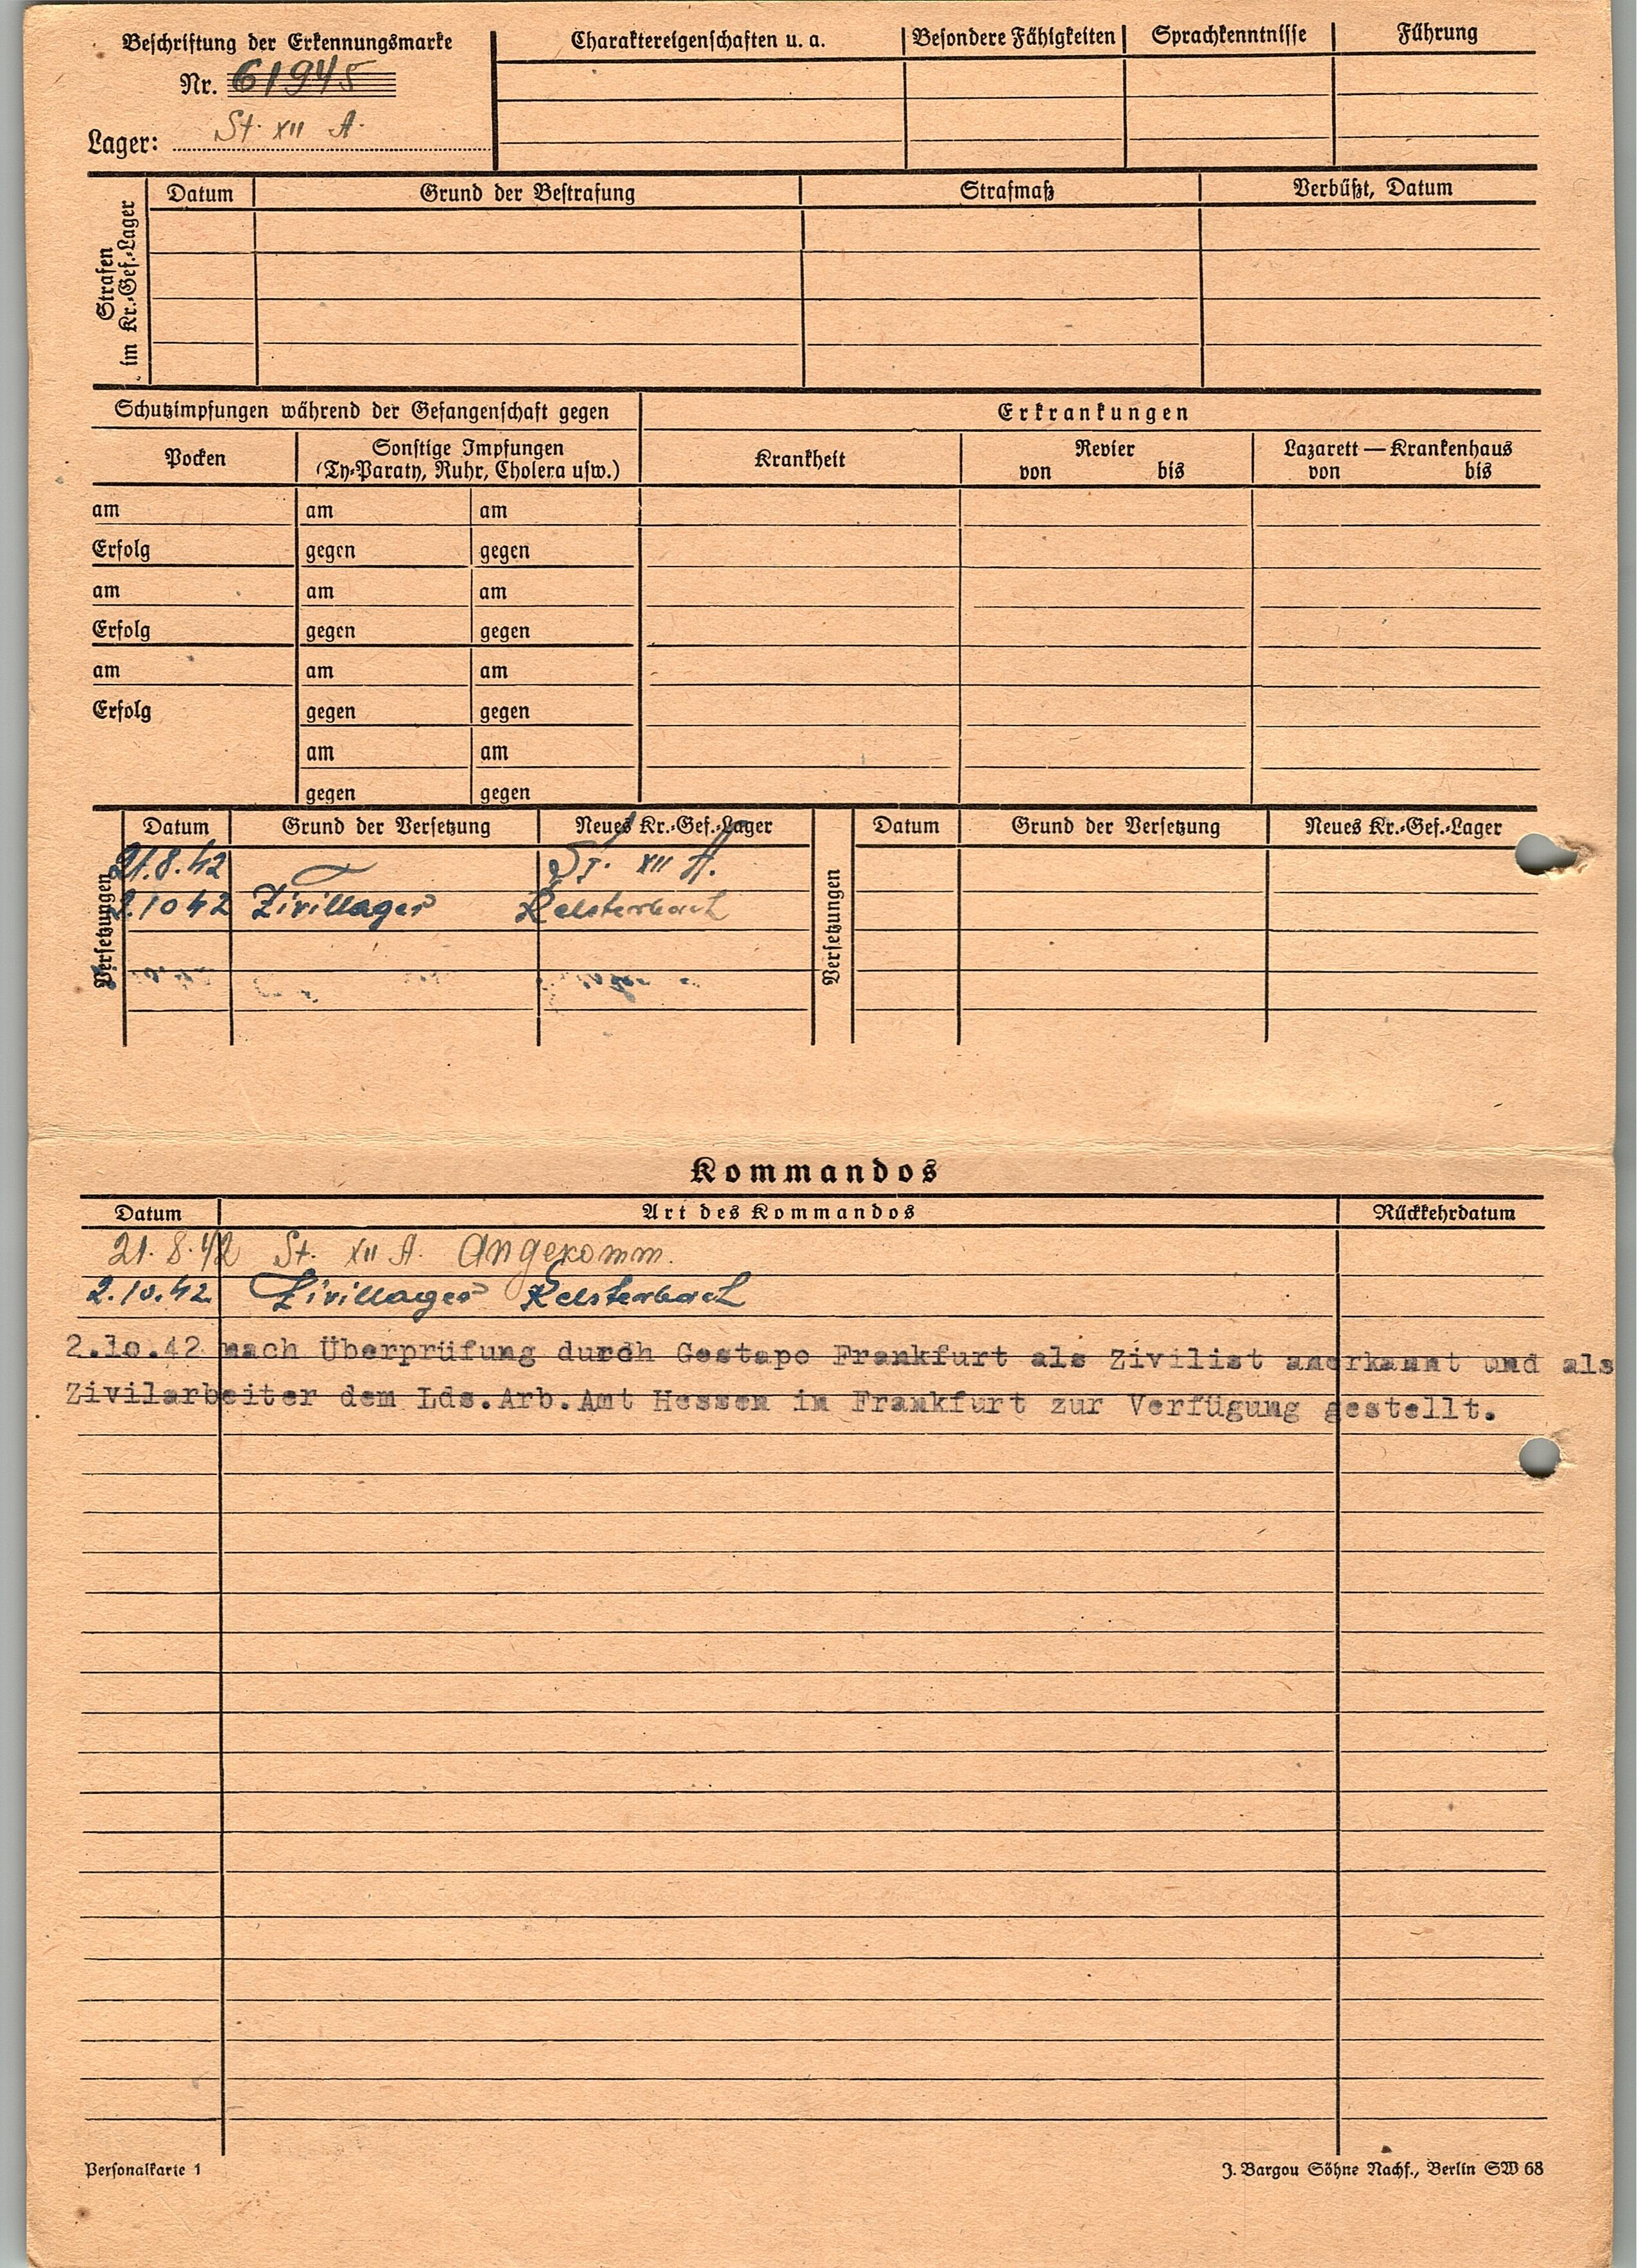 Beschriftung der Erkennungsmarke
Nr. 61945
Lager: St. XII A.
Charaktereigenschaften u. a. Besondere Fähigkeiten Sprachkenntnisse Führung
Strafen im Kr.-Gef.-Lager
Datum Grund der Bestrafung Strafmaß Verbüßt, Datum
Schutzimpfungen während der Gefangenschaft gegen Erkrankungen
Pocken
Sonstige Impfungen
(Ty-Paraty, Ruhr, Cholera usw.)
Krankheit
Revier
von bis
Lazarett — Krankenhaus
von bis
am am am
Erfolg gegen gegen
am am am
Erfolg gegen gegen
am am am
Erfolg gegen gegen
am am
gegen gegen
Versetzungen
Datum Grund der Versetzung Neues Kr.-Gef.-Lager
21.8.42 St. XII A.
2.10 42 Zivillager Kelsterbach
Versetzungen
Datum Grund der Versetzung Neues Kr.-Gef.-Lager
Kommandos
Datum Art des Kommandos Rückkehrdatum
21.8.42 St. XII A. Angekomm.
2.10.42. Zivillager Kelsterbach
2.1o.42 nach Überprüfung durch Gestapo Frankfurt als Zivilist anerkannt und als
Zivilarbeiter dem Lds.Arb.Amt Hessen in Frankfurt zur Verfügung gestellt.
Personalkarte 1
J. Bargou Söhne Nachf., Berlin SW 68